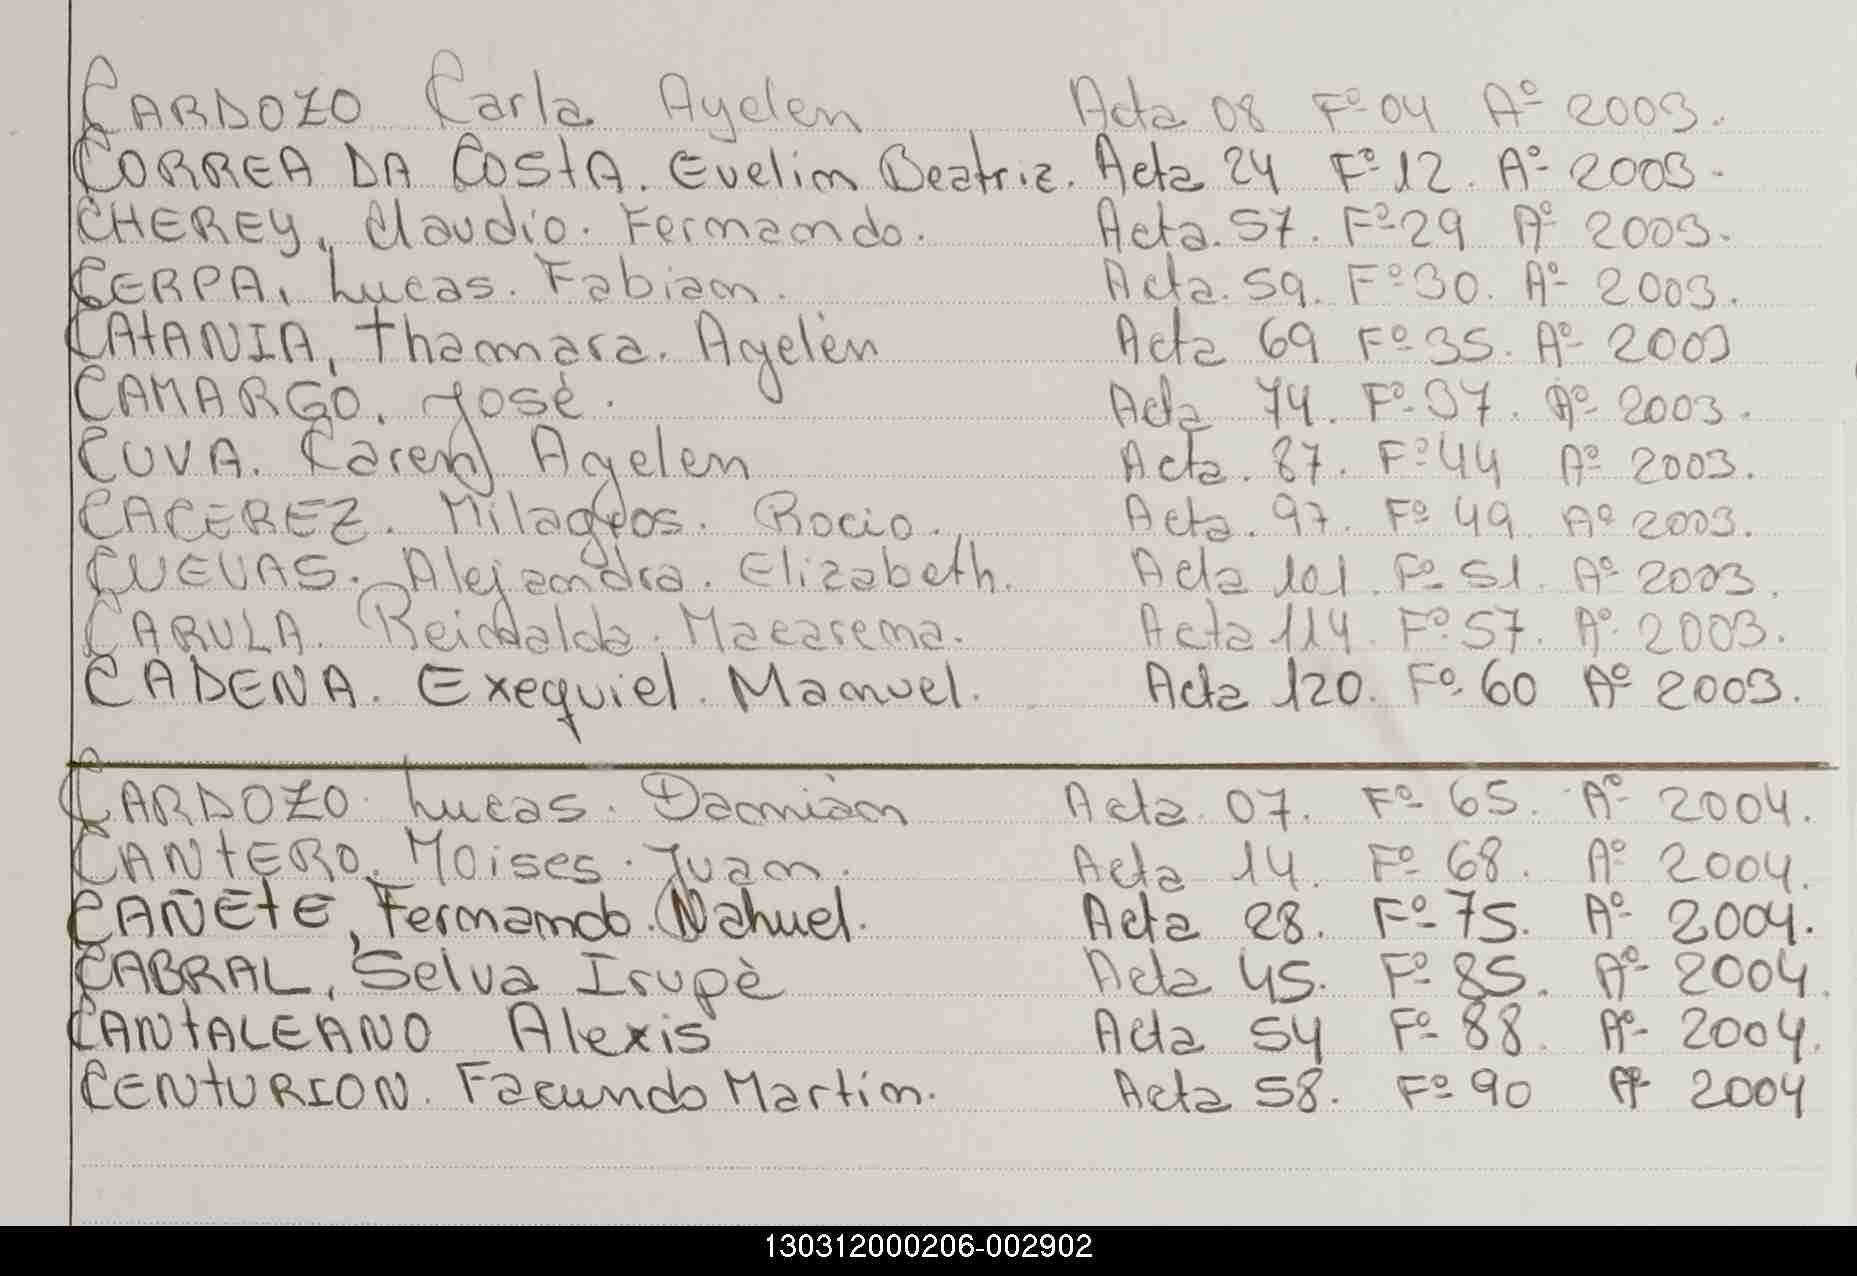 CARDOZO Carla Ayelen Acta 08 Fº 04 Aº 2003.
CORREA DA COSTA. Evelin Beatriz. Acta 24 Fº 12. Aº 2003.
CHEREY, Claudio. Fernando. Acta. 57. Fº 29 Aº 2003.
CERPA, Lucas. Fabian. Acta. 59. Fº 30. Aº 2003.
CATANIA, Thamara. Ayelèn Acta 69 Fº 35. Aº 2003
CAMARGO. José. Acta 74. Fº 37. Aº 2003.
CUVA. Caren Ayelen Acta. 87. Fº 44 Aº 2003.
CACEREZ. Milagros. Rocio. Acta. 97. Fº 49. Aº 2003.
CUEVAS. Alejandra. Elizabeth. Acta 101. Fº 51. Aº 2003.
CARULA. Macarena. Acta 114. Fº 57. Aº 2003.
CADENA. Exequiel. Manuel. Acta 120. Fº 60 Aº 2003.
CARDOZO. Lucas. Damiàn Acta 07. Fº 65. Aº 2004.
CANTERO. Moises. Juan. Acta 14. Fº 68. Aº 2004.
CAÑETE, Fernando. Nahuel. Acta 28. Fº 75. Aº 2004.
CABRAL, Selva Irupè Acta 45. Fº 85. Aº 2004.
CANTALEANO Alexis Acta 54 Fº 88. Aº 2004.
CENTURION. Facundo Martin. Acta 58. Fº 90 Aº 2004
130312000206-002902